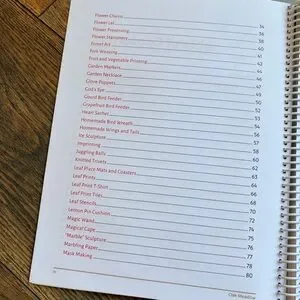 Flower Chains 34
Flower Lei 36
Flower Preserving 38
Flower Streamers
Forest Art 40
Fork Weaving 41
Fruit and Vegetable Printing 42
Garden Markers 44
Garden Necklace 46
Glove Puppets 48
God's Eye 49
Gourd Bird Feeder 50
Grapefruit Bird Feeder 52
Heart Sachet
Homemade Bird Wreath 54
Homemade Wings and Tails 56
Ice Sculpture 57
Imprinting 58
Juggling Balls 60
Knitted Trivets 62
Leaf Place Mats and Coasters 63
Leaf Prints 64
Leaf Print T-Shirt 66
Leaf Print Tiles 68
Leaf Stencils 70
Lemon Pin Cushion 72
Magic Wand 74
Magical Cape 75
'Marble' Sculpture 76
Marbling Paper 77
Mask Making 78
80